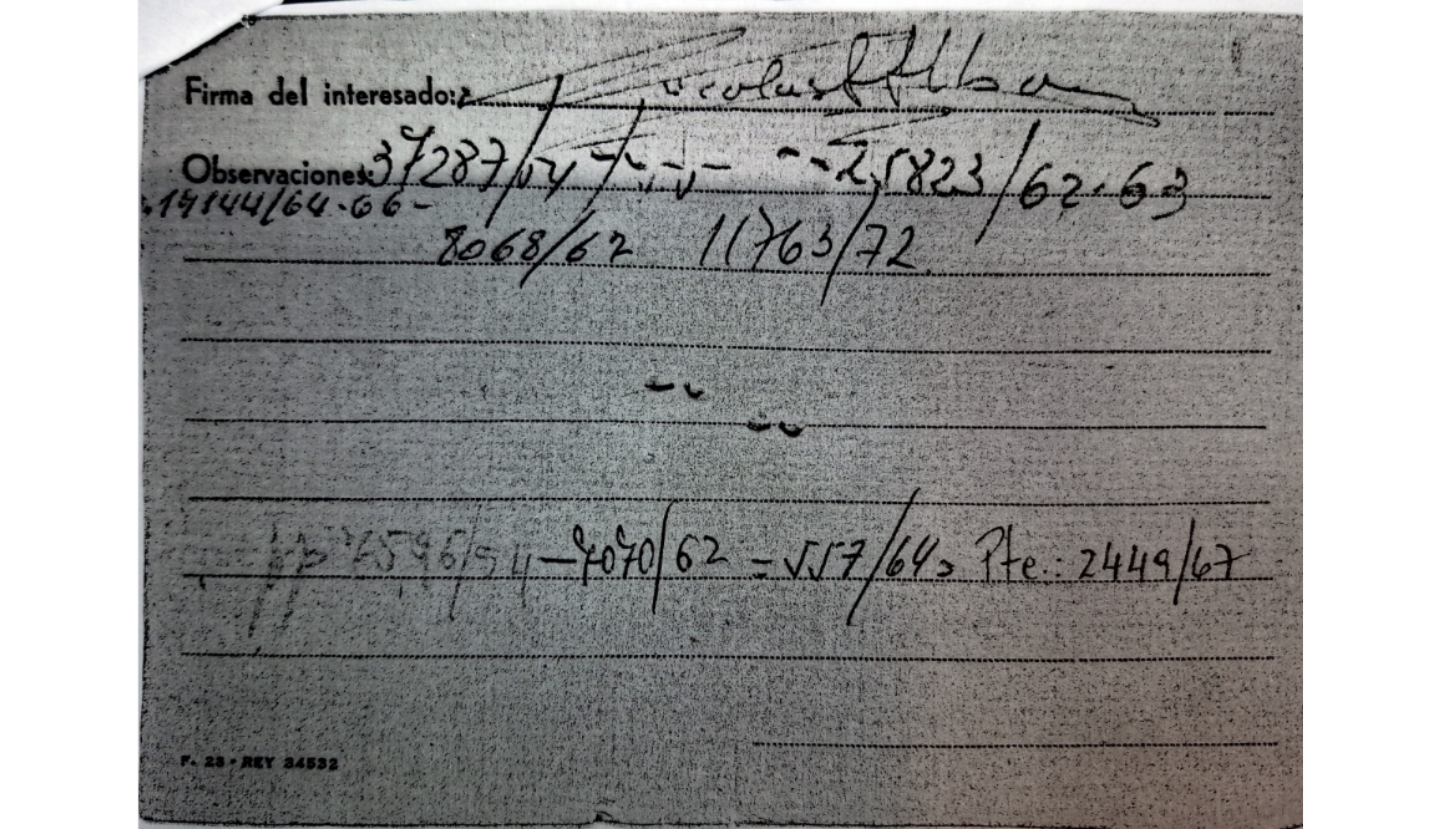 Firma del interesado: Nicolas Alba
Observaciones: 37287/54 -- 25823/62-63
19144/64-66-
8068/62 11763/72
6596/54 - 7070/62 = 557/64 Pte.: 2449/67
F. 23 - REY 34532